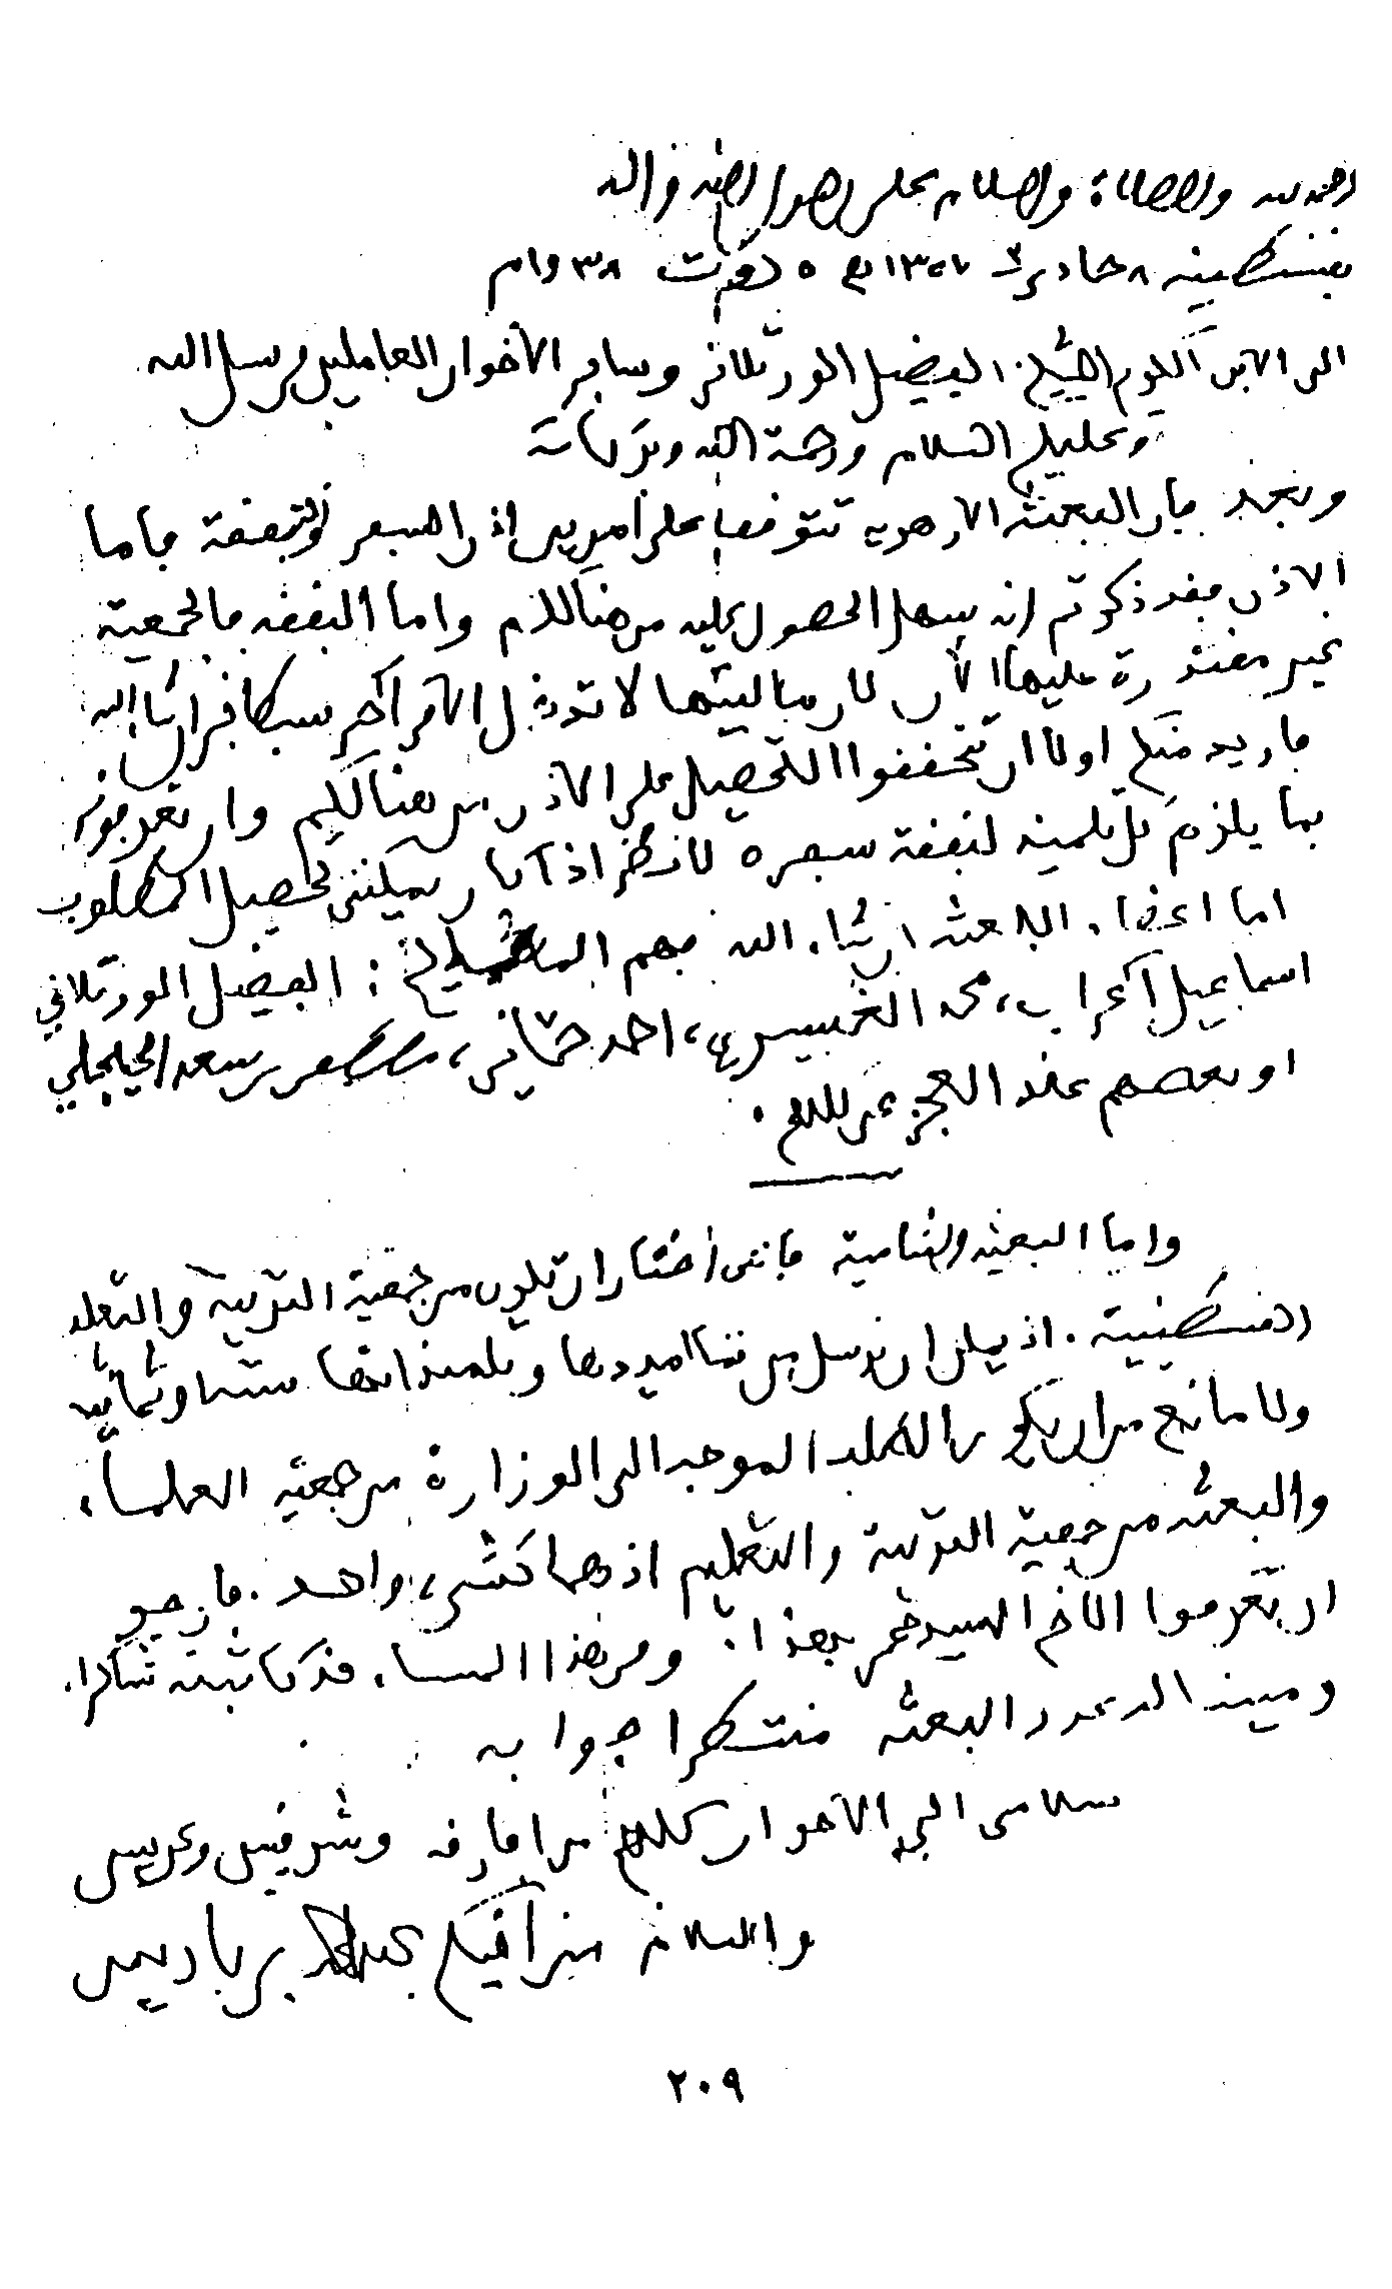 الحمد لله والصلاة والسلام على رسول الله وآله
بقسنطينة ٨ جمادى ٢ ١٣٥٧ ٥ أوت ٣٨ وام
الى الابن الكريم الشيخ الفضيل الورتلاني وساير الاخوان العاملين في سبيل الله
وعليكم السلام ورحمة الله وبركاته
وبعد فان البعثة الازهرية تتوقف على امرين اذن السفر والنفقة فاما
الاذن فقد ذكرتم انه يسهل الحصول عليه من هنالكم واما النفقة فالجمعية
غير مقتدرة عليها الآن لان ماليتها لا
فاريد منكم اولا ان تحققوا التحصيل على الاذن من هنالكم وان تعرفوني
بما يلزم كل تلميذ لنفقة سفره لانظر اذا كان يمكنني تحصيل المطلوب
اما اعضاء البعثة ان شاء الله فهم المشايخ : الفضيل الورتلاني
اسماعيل اعراب، محمد الغسيري، احمد حماني، بن سعد الجيجلي
او بعضهم عند العجز عن كلهم .
واما البعثة الشامية فانني اختار ان تكون من جمعية التربية والتعليم
القسنطينية . اذ يمكن ان نرسل من تلاميذها وتلميذاتها ستة او ثمانية
ولا مانع من ان يكون الطلب الموجه الى الوزارة من جمعية العلماء،
والبعثة من جمعية التربية والتعليم اذ هما كشيء واحد . فارجو
ان تعرفوا الاخ السيد بهذا . وفي هذا المساء قد كاتبته شاكرا.
ومبينا له عدد البعثة منتظرا جوابه
سلامي الى الاخوان كلهم من افارقة وشرقيين وغربيين
والسلام من اخيكم عبد الحميد بن باديس
٢٠٩